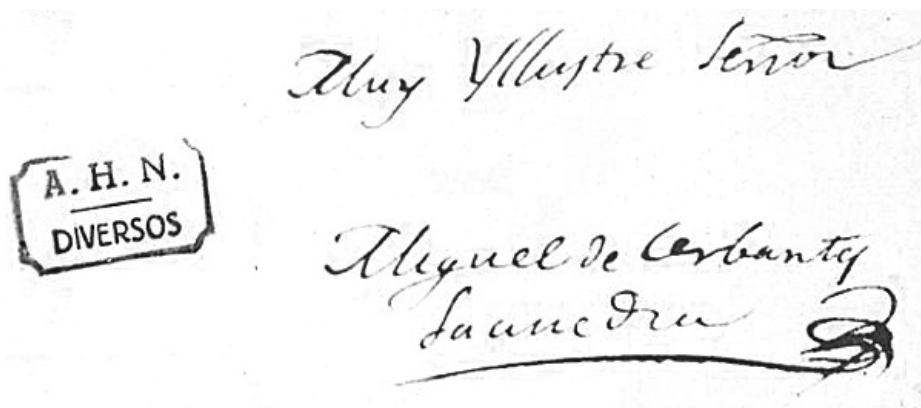 Muy Yllustre Señor
A. H. N.
DIVERSOS
Miguel de Cerbantes
Saauedra